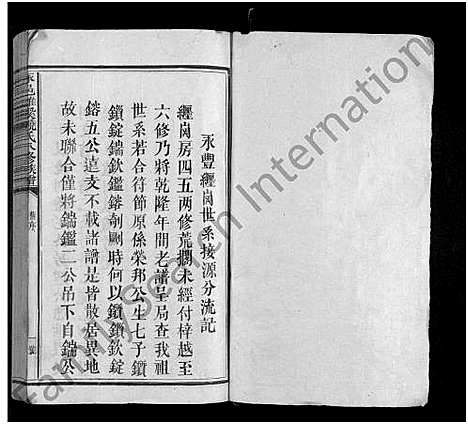 永豐繩岡世系接源分流記
繩岡房四五兩修荒擱未經付梓越至
六修乃將乾隆年間老譜呈局查我祖
世系若合符節原係榮邦公生七子鑽
鎖錠鍴欽鑑鎔剞劂時何以鑽鎖欽錠
鎔五公遠支不載諸譜是皆散居異地
故未聯合僅將鍴鑑二公吊下自鍴公
氏六修族譜
舊序
FamilySearch International